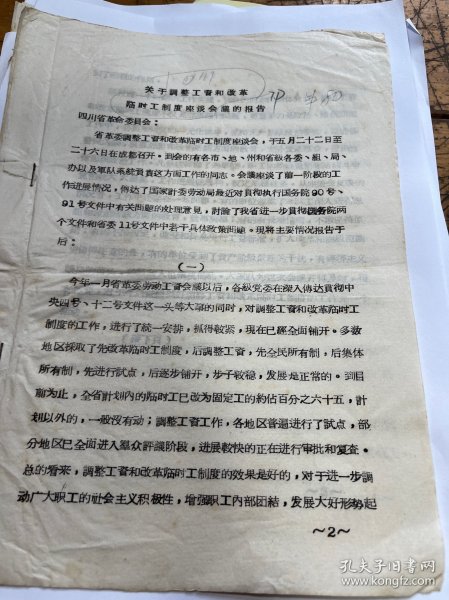 关于調整工資和改革
临时工制度座谈会議的报告
四川省革命委員会：
省革委調整工資和改革临时工制度座谈会，于五月二十二日至
二十六日在成都召开。到会的有各市、地、州和省級各委、組、局、
办以及軍队系統負責这方面工作的同志。会議座谈了前一阶段的工
作进展情况，傳达了国家計委劳动局最近对貫彻执行国务院90号、
91号文件中有关問題的处理意見，討論了我省进一步貫彻国务院两
个文件和省委11号文件中若干具体政策問題。现将主要情况报告于
后：
（一）
今年一月省革委劳动工資会議以后，各級党委在深入傳达貫彻中
央四号、十二号文件这一头等大事的同时，对調整工資和改革临时工
制度的工作，进行了統一安排，抓得較紧，現在已經全面铺开。多数
地区採取了先改革临时工制度，后調整工資，先全民所有制，后集体
所有制，先进行試点，后逐步铺开，步子較稳，发展是正常的。到目
前为止，全省計划内的临时工已改为固定工的約佔百分之六十五，計
划以外的，一般没有动；調整工資工作，各地区普遍进行了試点，部
分地区已全面进入羣众評議阶段，进展較快的正在进行审批和复查。
总的看来，調整工資和改革临时工制度的效果是好的，对于进一步調
动广大职工的社会主义积极性，增强职工内部团結，发展大好形势起
～2～
孔夫子旧书网
www.kongfz.com